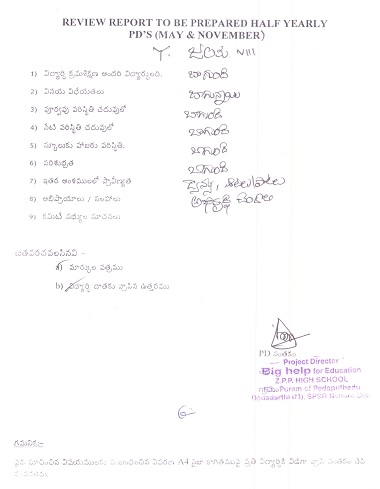 REVIEW REPORT TO BE PREPARED HALF YEARLY
PD'S (MAY & NOVEMBER)
Y. VIII
1) విద్యార్థి క్రమశిక్షణ అందరి విద్యార్థులది. బాగుంది
2) వినయ విధేయతలు బాగున్నాయి
3) పూర్వపు పరిస్థితి చదువులో బాగుంది
4) నేటి పరిస్థితి చదువులో బాగుంది
5) స్కూలుకు హాజరు పరిస్థితి. బాగుంది
6) పరిశుభ్రత బాగుంది
7) ఇతర అంశములలో ప్రావీణ్యత డ్యాన్సు, ఆటలు/పాటలు
8) అభిప్రాయాలు / సలహాలు అభివృద్ధి చెందాలి
9) కమిటీ సభ్యుల సూచనలు
జతపరచవలసినవి :-
a) మార్కుల పత్రము
b) విద్యార్థి దాతకు వ్రాసిన ఉత్తరము
PD సంతకం
Project Director
Big help for Education
Z.P.P. HIGH SCHOOL
Puram of Pedaputhedu
గమనిక:-
పైన సూచించిన విషయములకు సంబంధించిన వివరణ A4 సైజు కాగితముపై ప్రతి విద్యార్థికి విడిగా వ్రాసి సంతకం చేసి